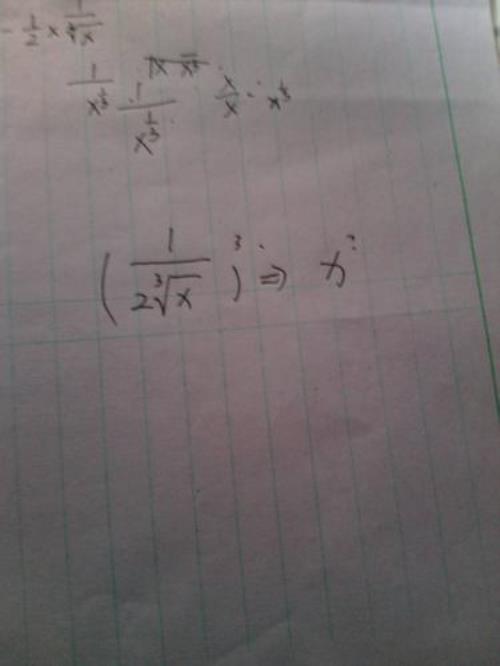 - 1/2 × 1/∛x
1/x^{1/3} 1/x^{1/3} x/x x^{1/3}
(1/(2∛x))^3 ⇒ x^?